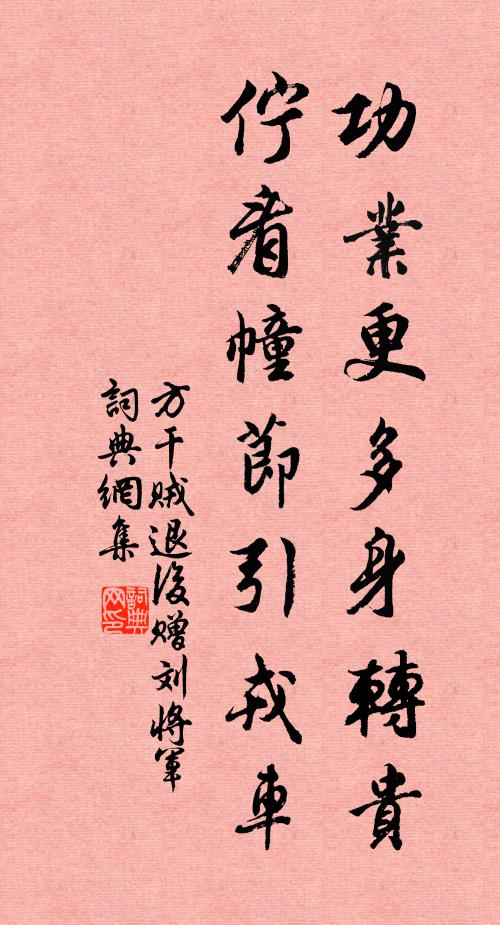 功業更多身轉貴
佇看幢節引戎車
方干贼退後赠刘将軍
詞典網集
詞典网印